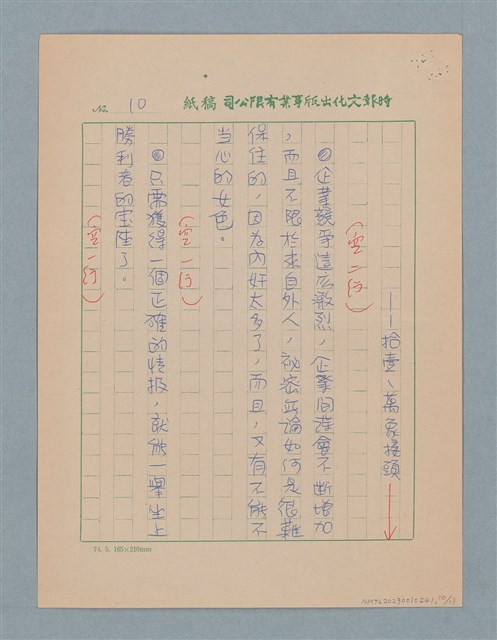 時報文化出版事業有限公司 稿紙
№ 10
——拾壹、萬象接頭
(空二行)
◎企業競爭這広激烈，企業间諜會不斷增加
，而且不限於來自外人，祕密無論如何是很難
保住的，因為內奸太多了，而且，又有不能不
当心的女色。
(空一行)
◎只需獲得一個正確的情报，就能一舉坐上
勝利者的宝座了。
(空一行)
74. 5. 165×210mm
NMTL20230010241, 10/13